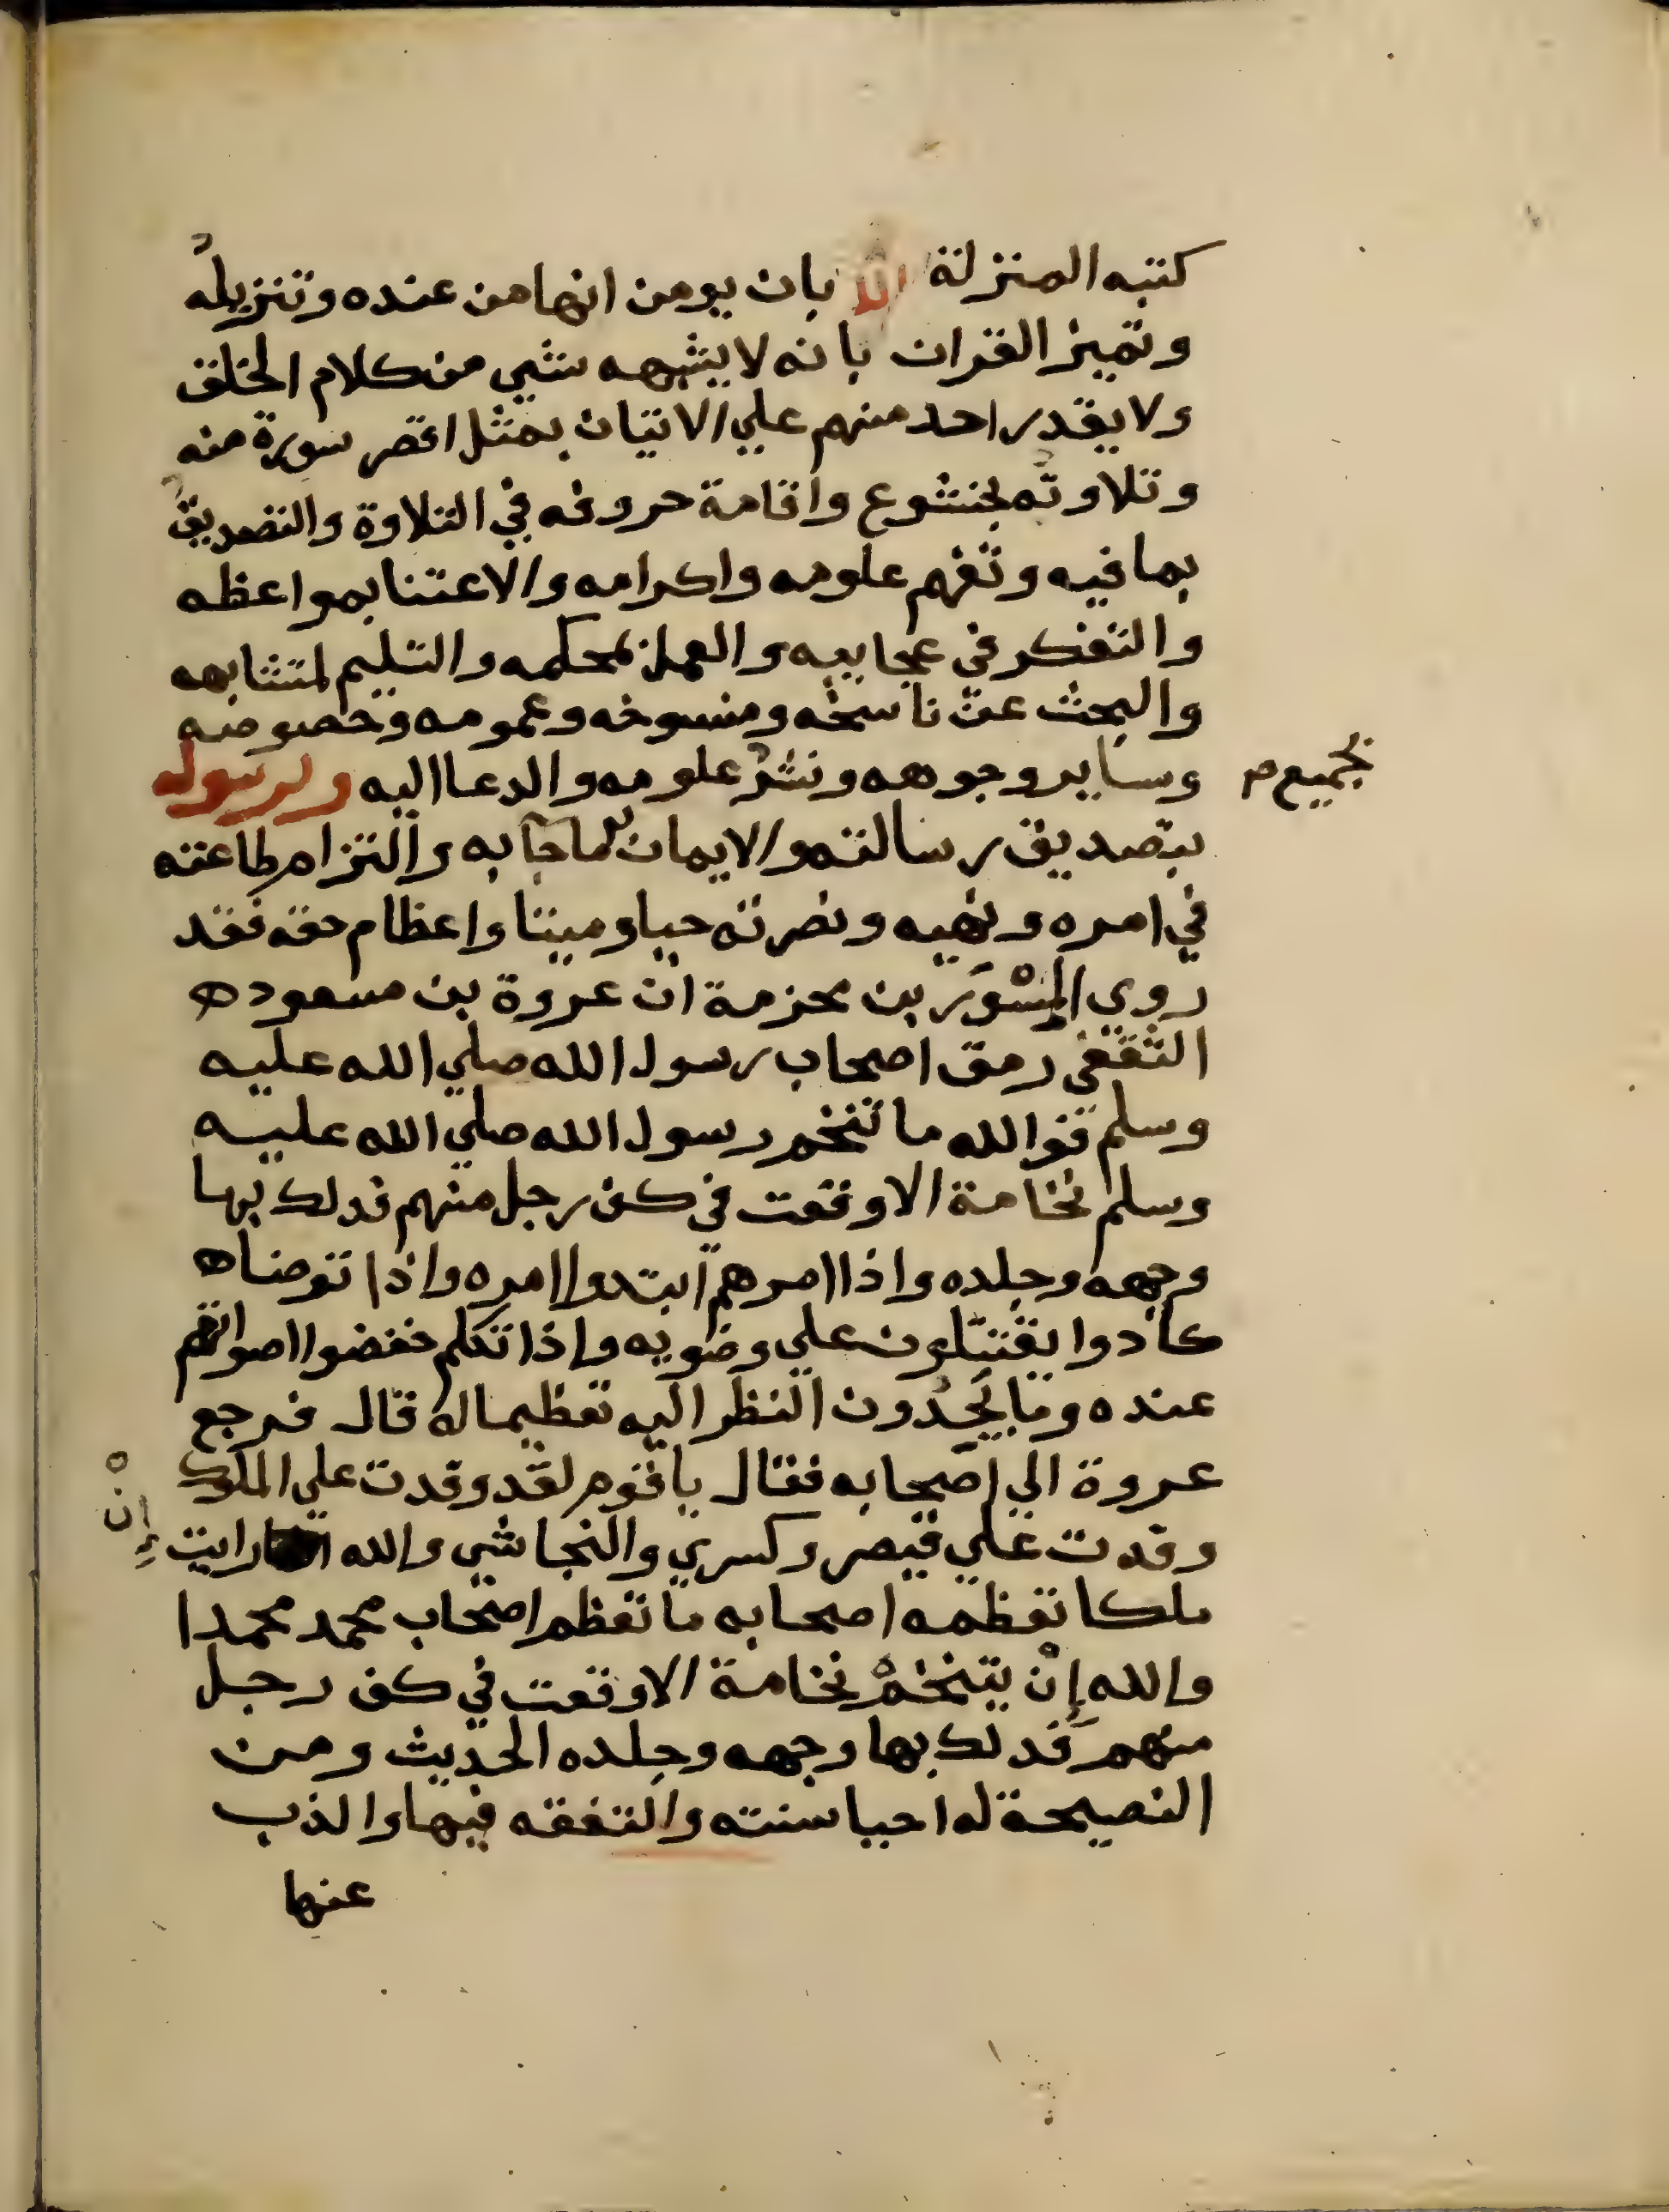 كتبه المنزلة بان يومن انها من عنده وتنزيله
وتميز القران بانه لا يشبهه شي من كلام الخلق
ولا يقدر احد منهم علي الاتيان بمثل اقصر سورة منه
وتلاوته بخشوع واقامة حروفه في التلاوة والتصديق
بما فيه وتفهم علومه واكرامه والاعتنا بمواعظه
والتفكر في عجايبه والعمل بمحكمه والتسليم لمتشابهه
والبحث عن ناسخه ومنسوخه وعمومه وخصوصه
وساير وجوهه ونشر علومه والدعا اليه ولرسوله
بجميع م
بتصديق رسالته والايمان بما جآ به والتزام طاعته
في امره ونهيه ونصرته حيا وميتا واعظام حقه فقد
روي المِسْوَر بن مخرمة ان عروة بن مسعود ه
الثقفي رمق اصحاب رسول الله صلي الله عليه
وسلم فوالله ما تنخم رسول الله صلي الله عليه
وسلم نخامة الا وقعت في كف رجل منهم فدلك بها
وجهه وجلده واذا امرهم ابتدوا امره واذا توضا ه
كادوا يقتتلون علي وضويه واذا تكلم خفضوا اصواتهم
عنده وما يحِدُون النظر اليه تعظيما له قال فرجع
عروة الي اصحابه فقال ياقوم لقد وفدت علي الملوك
وفدت علي قيصر وكسري والنجاشي والله رايت
إنْ
ملكا تعظمه اصحابه ما تعظم اصحاب محمد محمدا
والله إنْ يتنخمْ نخامة الا وقعت في كف رجل
منهم فَدلك بها وجهه وجلده الحديث ومن
النصيحة له احيا سنته والتفقه فيها والذب
عنها